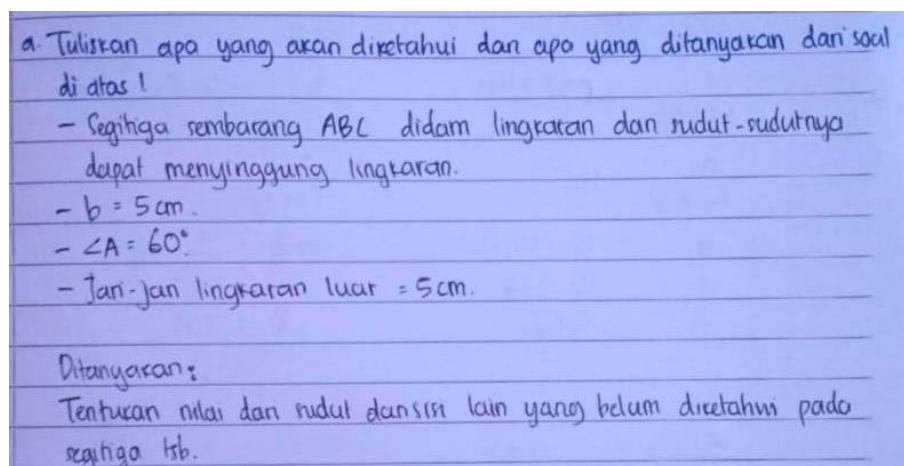 a. Tuliskan apa yang akan diketahui dan apa yang ditanyakan dari soal
di atas !
- Segitiga sembarang ABC didam lingkaran dan sudut-sudutnya
dapat menyinggung lingkaran.
- b = 5 cm.
- ∠A = 60°.
- Jari-jari lingkaran luar = 5 cm.
Ditanyakan :
Tentukan nilai dari sudut dan sisi lain yang belum diketahui pada
segitiga tsb.